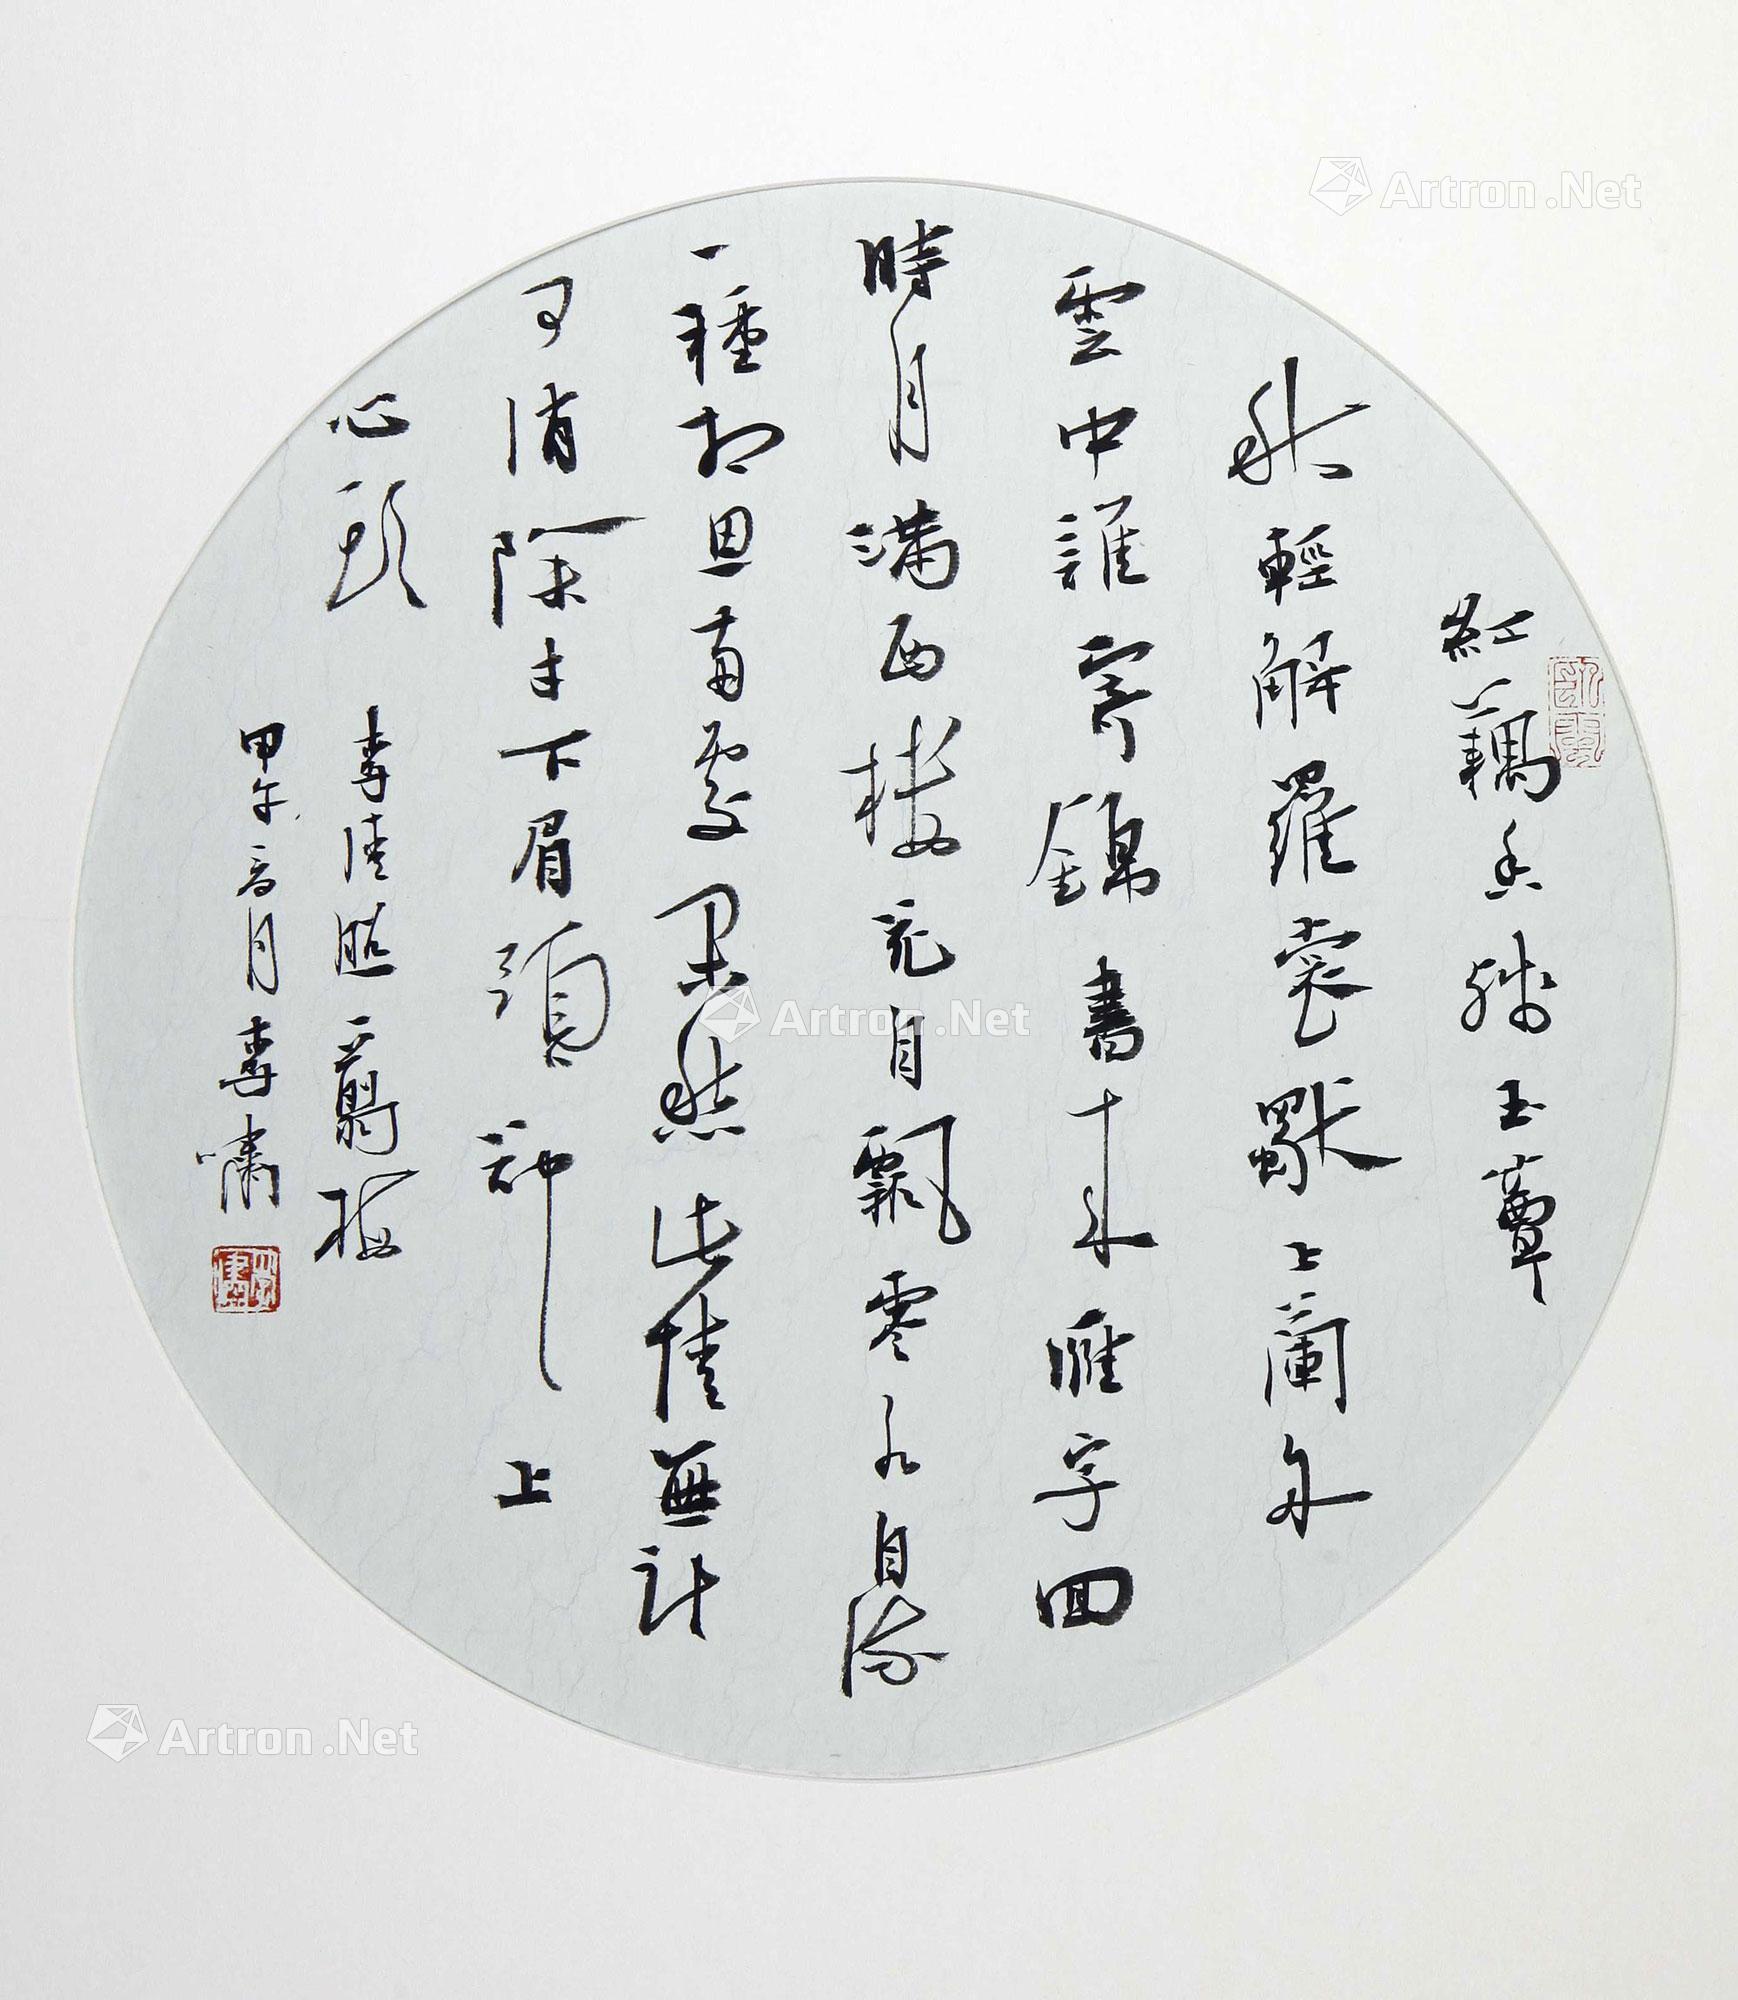 紅藕香殘玉簟
秋輕解羅裳獨上蘭舟
雲中誰寄錦書來雁字回
時月滿西樓花自飄零水自流
一種相思兩處閑愁此情無計
可消除才下眉頭卻上
心頭 李清照一剪梅
甲午月李嘯
Artron.Net
Artron.Net
Artron.Net